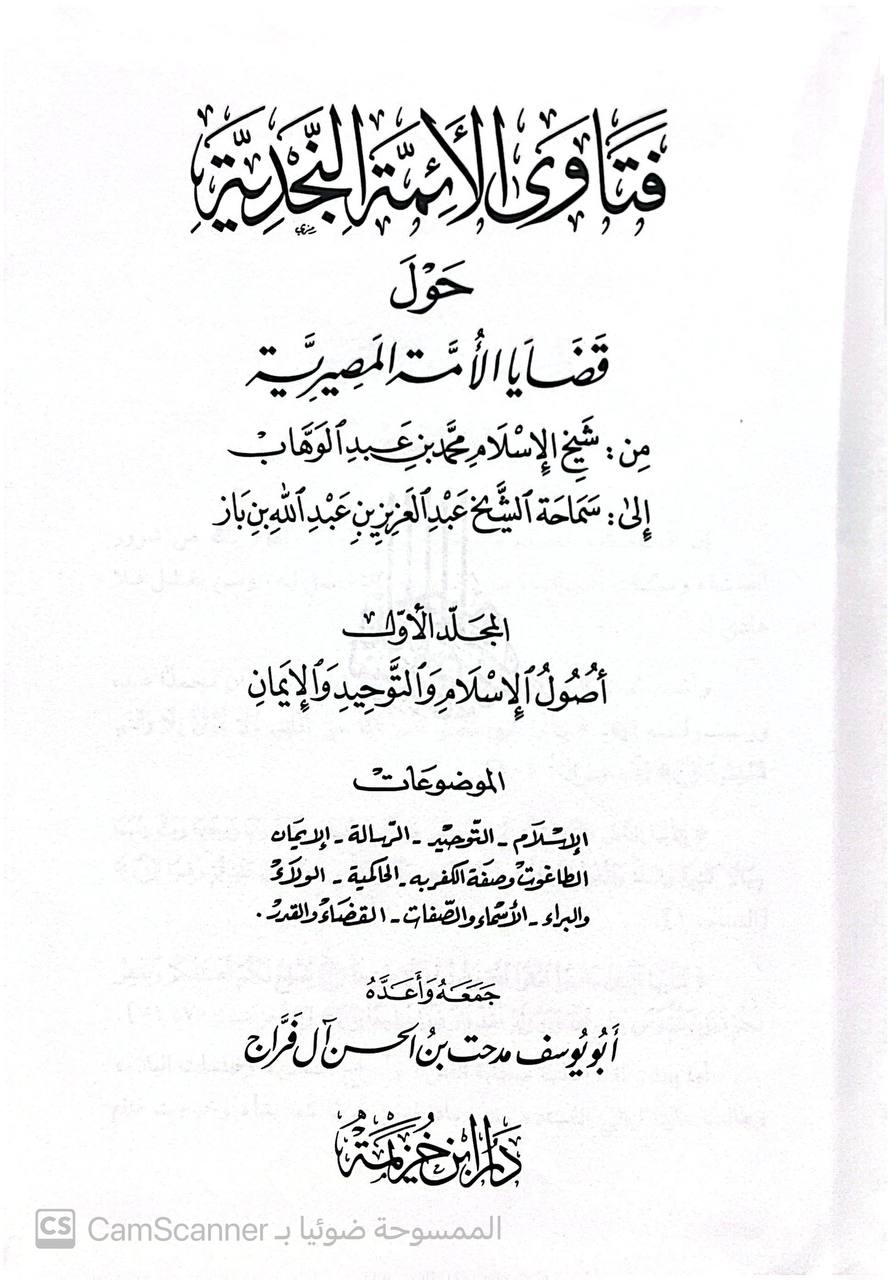 فَتَاوَى الأَئِمَّةِ النَّجْدِيَّةِ
حَوْلَ
قَضَايَا الأُمَّةِ المَصِيرِيَّةِ
مِن: شَيْخِ الإِسْلَامِ مُحَمَّد بنِ عَبدِ الوَهَّابْ
إِلىٰ: سَمَاحَة الشَّيْخ عَبْدِ العَزِيزِ بنِ عَبْدِ اللهِ بنِ بَاز
المجَلّد الأوّل
أُصُولُ الإِسْلَامِ وَالتَّوحِيدِ وَالإِيمَانِ
الموضوعَات
الإسْلَام - التّوحيْد - الرّسالة - الإيمَان
الطاغوتْ وصفَة الكفر به - الحَاكمية - الولاءْ
والبراء - الأسمَاء والصّفات - القضَاءْ والقدرْ.
جَمَعَهُ وَأَعَدَّهُ
أَبُو يُوسف مدحت بنُ الحسن آل فَرَّاج
دَار ابن خُزَيمَة
CS CamScanner الممسوحة ضوئيا بـ